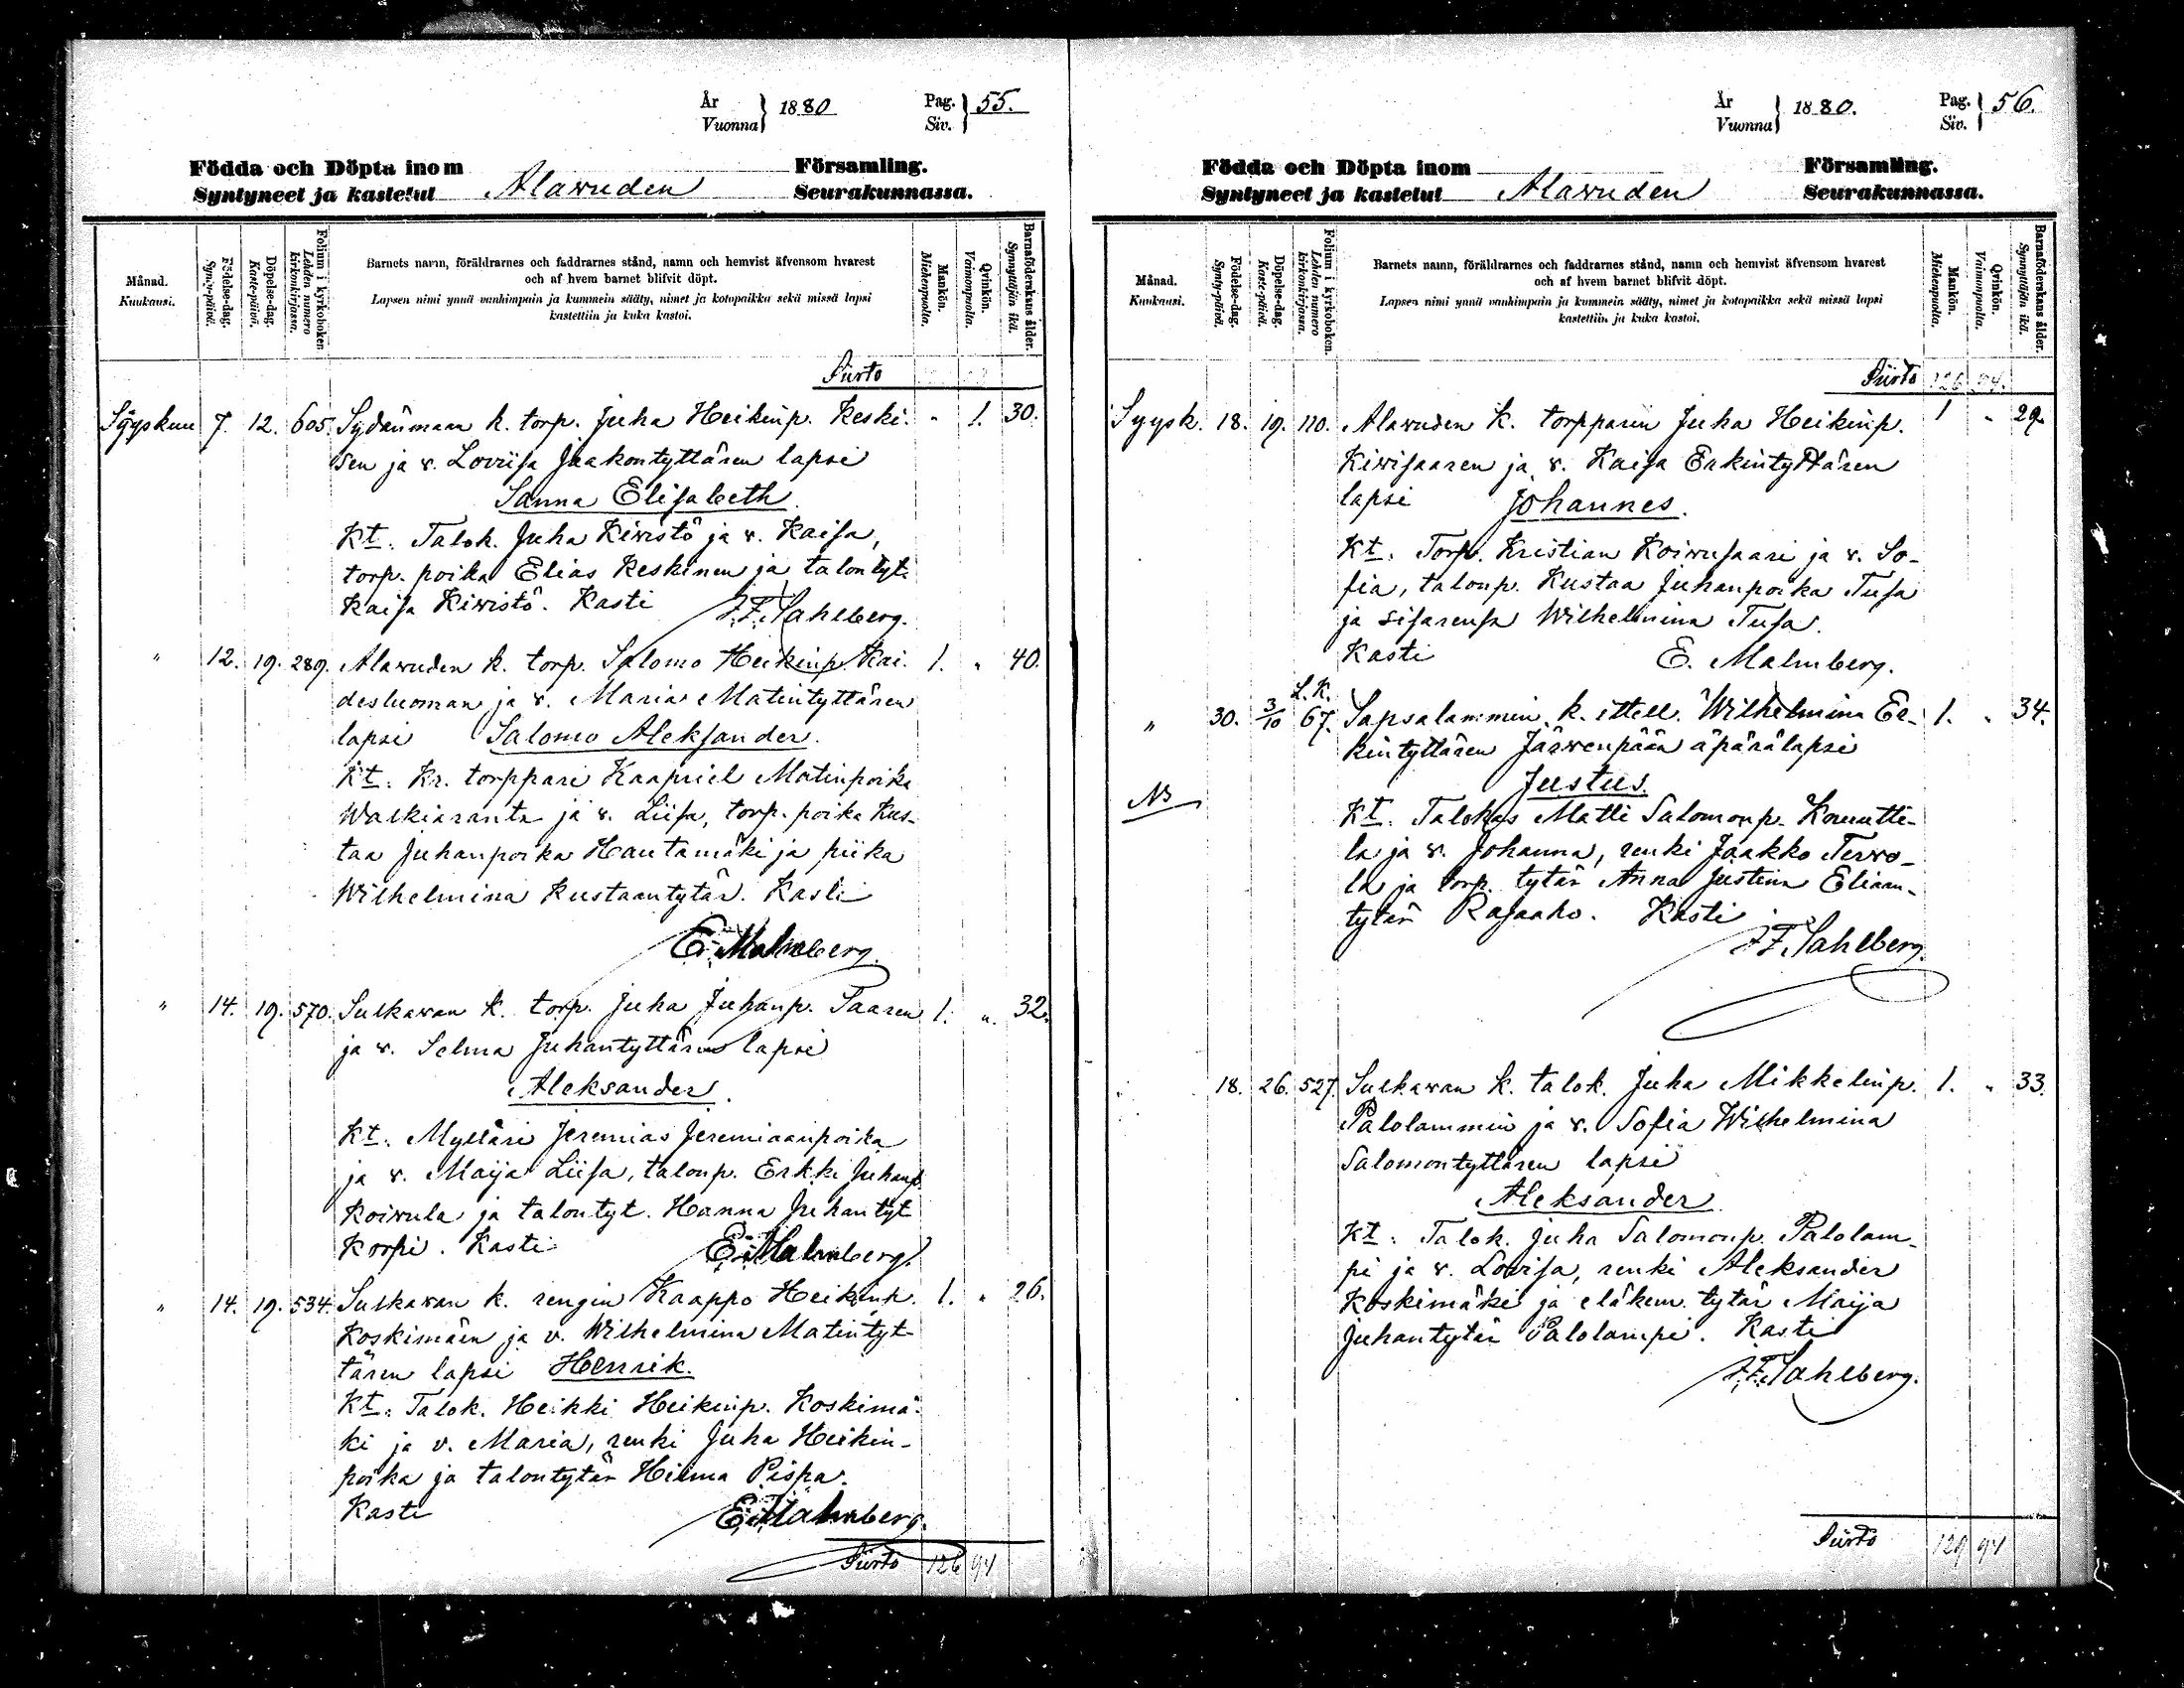 År
Vuonna } 1880 Pag.
Siv. } 55.
Födda och Döpta inom Församling.
Syntyneet ja kastetut Alawuden Seurakunnassa.
Månad.
Kuukausi.
Födelse-dag.
Synty-päivä.
Döpelse-dag.
Kaste-päivä.
Folium i kyrkoboken
Lehden numero
kirkonkirjassa.
Barnets namn, föräldrarnes och faddrarnes stånd, namn och hemvist äfvensom hvarest
och af hvem barnet blifvit döpt.
Lapsen nimi ynnä vanhimpain ja kummein sääty, nimet ja kotopaikka sekä missä lapsi
kastettiin ja kuka kastoi.
Mankön.
Miehenpuolta.
Qvinkön.
Vaimonpuolta.
Barnaföderskans ålder.
Synnyttäjän ikä.
Siirto
Syyskuu 7. 12. 605. Sydänmaan k. torp. Juha Heikinp. Keski- " 1. 30.
sen ja v. Loviisa Jaakontyttären lapsi
Sanna Elisabeth
Kt. Talok. Juha Kiwistö ja v. Kaisa,
torp. poika Elias Keskinen ja talontyt.
Kaisa Kiwistö. Kasti J.F. Sahlberg.
" 12. 19. 289. Alawuden k. torp. Salomo Heikinp. Kai- 1. " 40.
desluoman ja v. Maria Matintyttären
lapsi Salomo Aleksander.
Kt. Kr. torppari Kaapriel Matinpoika
Walkiaranta ja v. Liisa, torp. poika Kus-
taa Juhanpoika Hautamäki ja piika
Wilhelmina Kustaantytär. Kasti
E. Malmberg.
" 14. 19. 570. Sulkawan k. torp. Juha Juhanp. Saaren 1. " 32.
ja v. Selma Juhantyttären lapsi
Aleksander.
Kt. Mylläri Jeremias Jeremiaanpoika
ja v. Maija Liisa, talonp. Erkki Juhanp.
Koiwula ja talontyt. Hanna Juhantyt
Korpi. Kasti E. Malmberg.
" 14. 19. 534. Sulkawan k. rengin Kaappo Heikinp. 1. " 26.
Koskimäen ja v. Wilhelmina Matintyt-
tären lapsi Henrik.
Kt. Talok. Heikki Heikinp. Koskimä-
ki ja v. Maria, renki Juha Heikin-
poika ja talontytär Hilma Pispa.
Kasti E. Malmberg.
Siirto 126 94
År
Vuonna } 1880. Pag.
Siv. } 56.
Födda och Döpta inom Församling.
Syntyneet ja kastetut Alawuden Seurakunnassa.
Månad.
Kuukausi.
Födelse-dag.
Synty-päivä.
Döpelse-dag.
Kaste-päivä.
Folium i kyrkoboken.
Lehden numero
kirkonkirjassa.
Barnets namn, föräldrarnes och faddrarnes stånd, namn och hemvist äfvensom hvarest
och af hvem barnet blifvit döpt.
Lapsen nimi ynnä vanhimpain ja kummein sääty, nimet ja kotopaikka sekä missä lapsi
kastettiin ja kuka kastoi.
Mankön.
Miehenpuolta.
Qvinkön.
Vaimonpuolta.
Barnaföderskans ålder.
Synnyttäjän ikä.
Siirto 126 94.
Syysk. 18. 19. 120. Alawuden k. torpparin Juha Heikinp. 1 " 29
Kiwisaaren ja v. Kaisa Erkintyttären
lapsi Johannes.
Kt. Torp. Kristian Koiwusaari ja v. So-
fia, talonp. Kustaa Juhanpoika Tusa
ja sisarensa Wilhelmina Tusa.
Kasti E. Malmberg.
L.K.
" 30. 3/10 67. Sapsalammin k. ittell. Wilhelmina Er- 1. " 34.
kintyttären Järwenpään äpärälapsi
Justus.
NB
Kt. Talokas Matti Salomonp. Kouutti-
la ja v. Johanna, renki Jaakko Terwo-
la ja torp. tytär Anna Justina Eliaan-
tytär Rajaaho. Kasti
J.F. Sahlberg.
18. 26. 527. Sulkawan k. talok. Juha Mikkelinp. 1. " 33.
Palolammin ja v. Sofia Wilhelmina
Salomontyttären lapsi
Aleksander
Kt. Talok. Juha Salomonp. Palolam-
pi ja v. Lovisa, renki Aleksander
Koskimäki ja eläkem. tytär Maija
Juhantytär Palolampi. Kasti
J.F. Sahlberg.
Siirto 129 94